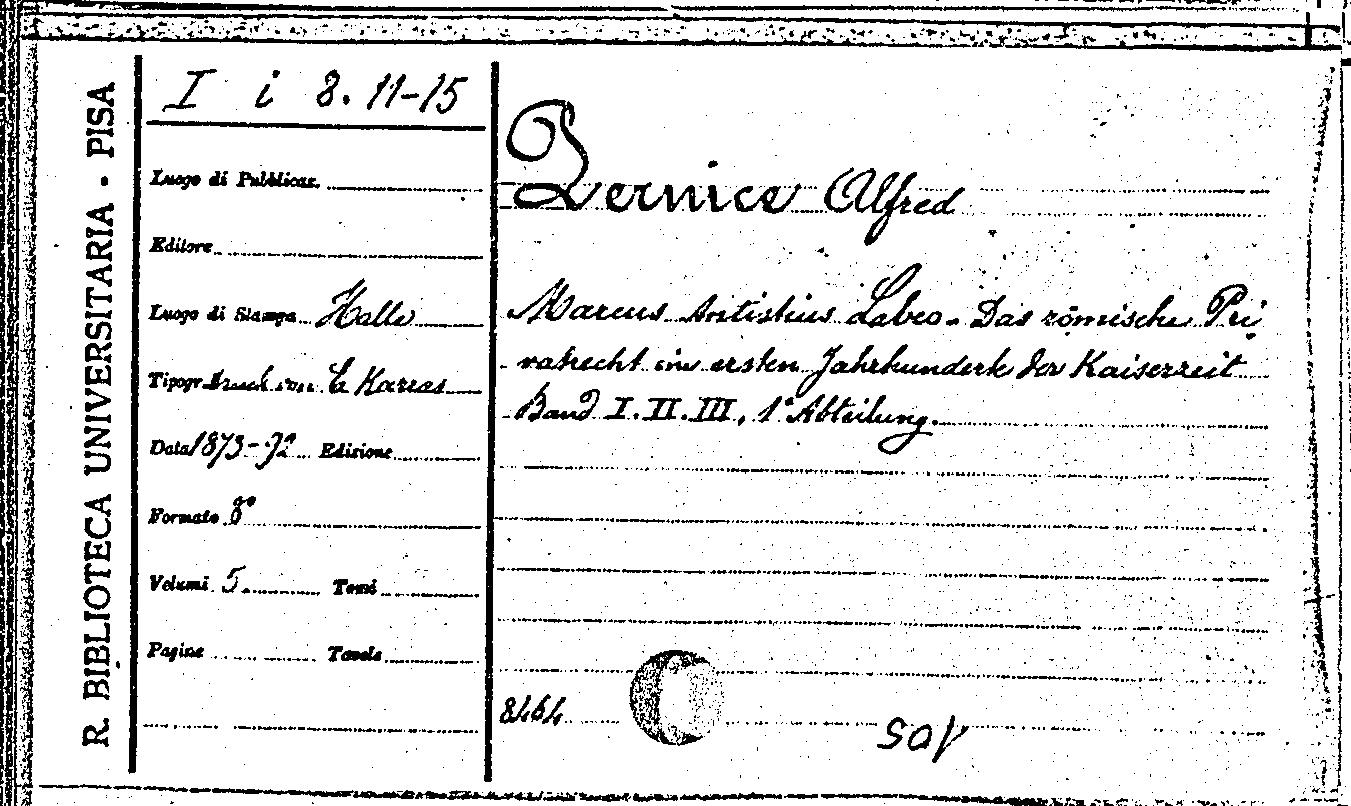 R. BIBLIOTECA UNIVERSITARIA - PISA
I i 8. 11-15
Luogo di Pubblicaz.
Editore
Luogo di Stampa Halle
Tipogr. Druck von E Karras
Data 1873-92 Edizione
Formato 8°
Volumi 5. Tomi
Pagine Tavole
Pernice Alfred
Marcus Antistius Labeo. Das römische Pri
vatrecht im ersten Jahrhunderte der Kaiserzeit
Band I. II. III, 1ª Abteilung.
8464
105